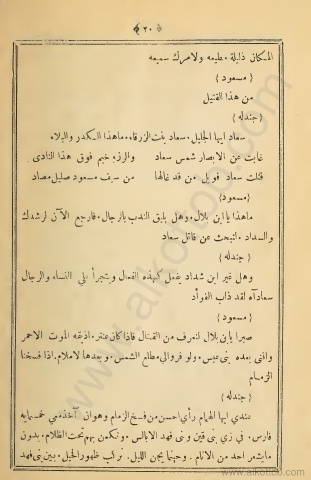 ﴿ ٢٠ ﴾
المكان ذليلة ٠ مطيعه ولامرك سميعه
﴿ مسعود ﴾
من هذا القتيل
﴿ جندله ﴾
سعاد ايها الجليل ٠ سعاد بنت الزرقاء ٠ ماهذا الكدر والبلاء
غابت عن الابصار شمس سعاد والرزء خيم فوق هذا النادى
قتلت سعاد فويل من قد غالها من سيف مسعود صليل مصاد
﴿ مسعود ﴾
ماهذا يا ابن بلال ٠ وهل يليق الندب بالرجال ٠ فارجع الآن لرشدك
والسداد ٠ لنبحث عن قاتل سعاد
﴿ جندله ﴾
وهل غير ابن شداد يفعل كهذه الفعال ويتجرأ على النساء والرجال
سعاد آه لقد ذاب الفوأد
﴿ مسعود ﴾
صبرا يابن بلال لنعرف من القتال فاذا كان عنتر ٠ اذيقه الموت الاحمر
وافنى بعده بنى عبس ٠ ولو فروا الى مطلع الشمس ٠ وبعدها لاملام ٠ اذا فسخنا
الزمام
﴿ جندله ﴾
عندي ايها الهمام رأي احسن من فسخ الزمام وهو ان آخذ معي خمسمايه
فارس ٠ في زي بنى قين وبنى فهد الابالس ٠ ونكمن بهم تحت الظلام ٠ بدون
مايشعر احد من الانام ٠ وحينما يجن الليل ٠ نركب ظهور الخيل ٠ بين بنى فهد
www.alkottob.com
www.alkottob.com